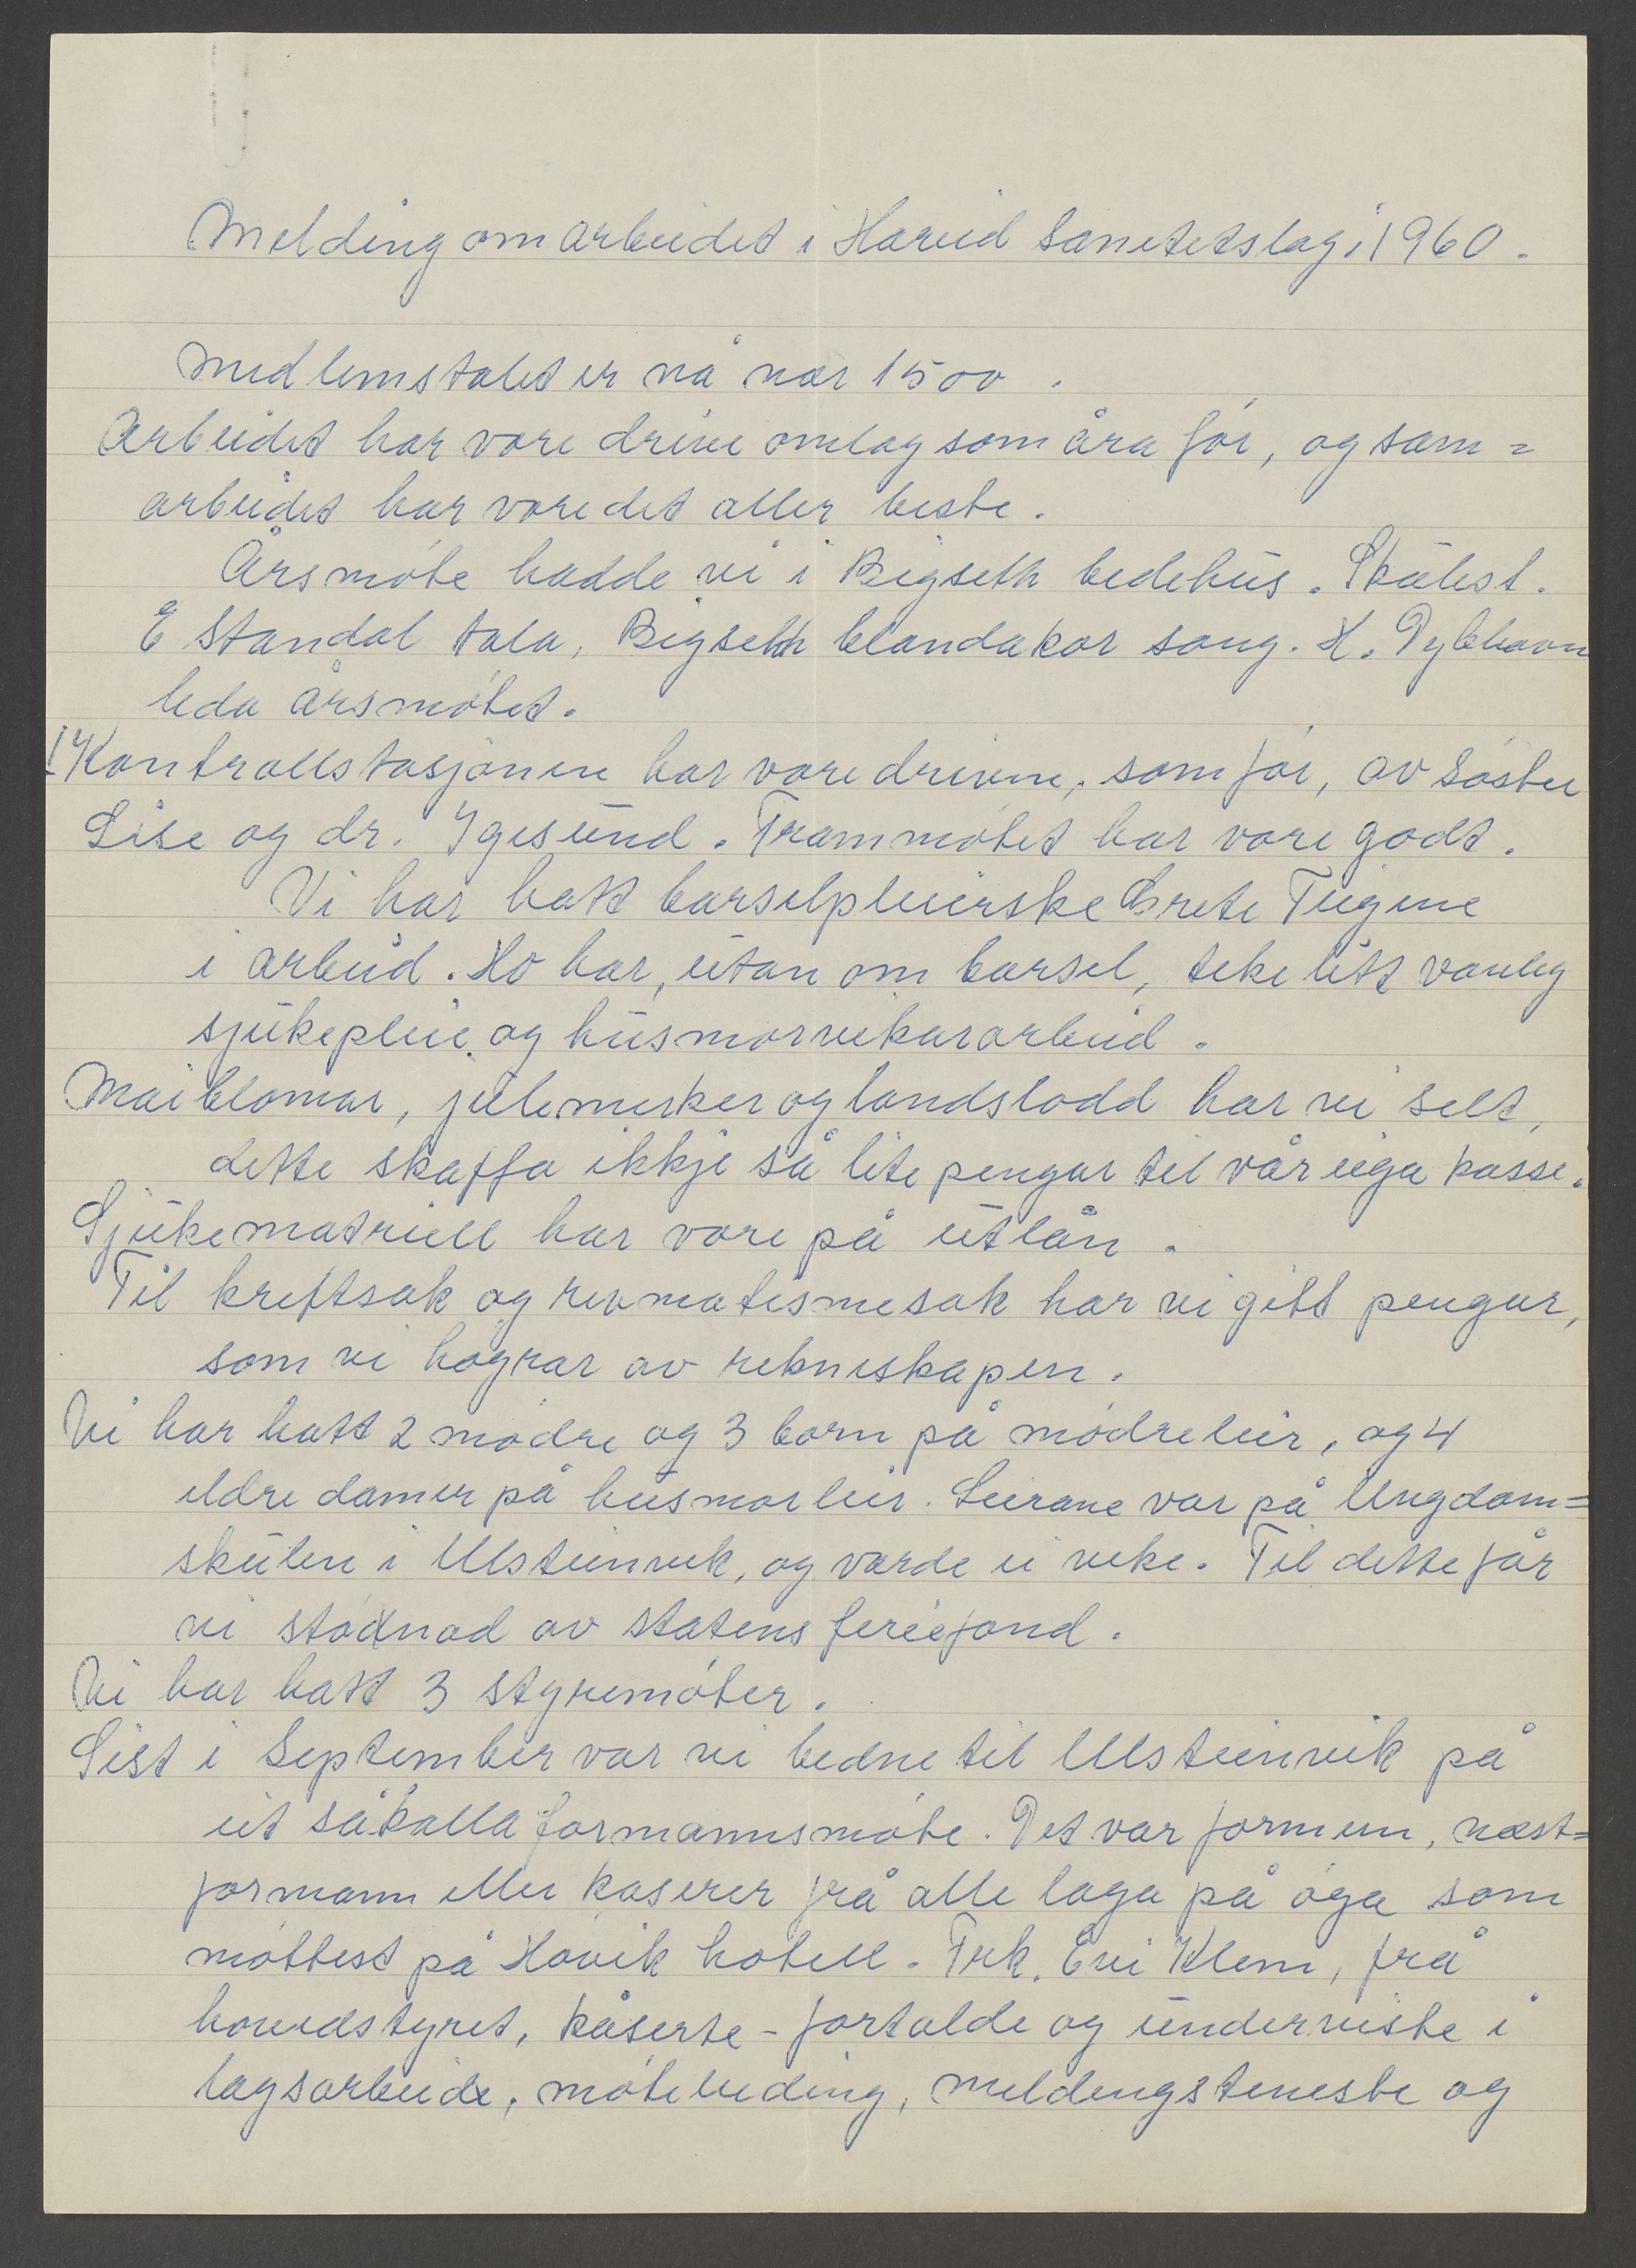 Melding om arbeidet i Hareid Sanitetslag i 1960.
Medlemstalet er nå nær 1500.
Arbeidet har vore drive omlag som åra før, og sam=
arbeidet har vore det aller beste.
Årsmøte hadde vi i Bigseth bedehus. Skulest.
E Standal tala, Bigseth blandakor song. H. Dybhavn
leda årsmøtet.
Kontrollstasjonen har vore drivem, som før, av søster
Lise og dr. Ygesund. Frammøtet har vore godt.
Vi har hatt barselpleierske Grete Teigene
i arbeid. Ho har, utan om barsel, teke litt vanleg
sjukepleie og husmorvikararbeid.
Maiblomar, julemerker og landslodd har vi selt,
dette skaffa ikkje så lite pengar til vår eiga kasse.
Sjukematriell har vore på utlån.
Til kreftsak og revmatismesak har vi gitt pengar,
som vi høyrar av rekneskapen.
Vi har hatt 2 mødre og 3 born på mødreleir, og 4
eldre damer på husmorleir. Leirane var på Ungdom=
skulen i Ulsteinvik, og varde ei veke. Til dette får
vi stødnad av statens feriefond.
Vi har hatt 3 styremøter.
Sist i September var vi bedne til Ulsteinvik på
eit såkalla formannsmøte. Det var formenn, næst=
formann eller kaserer frå alle laga på øya som
møttest på Hovik hotell. Frk. Evi Klem, frå
hovedstyret, kåserte - fortalde og underviste i
lagsarbeide, møteleiding, meldingsteneste og